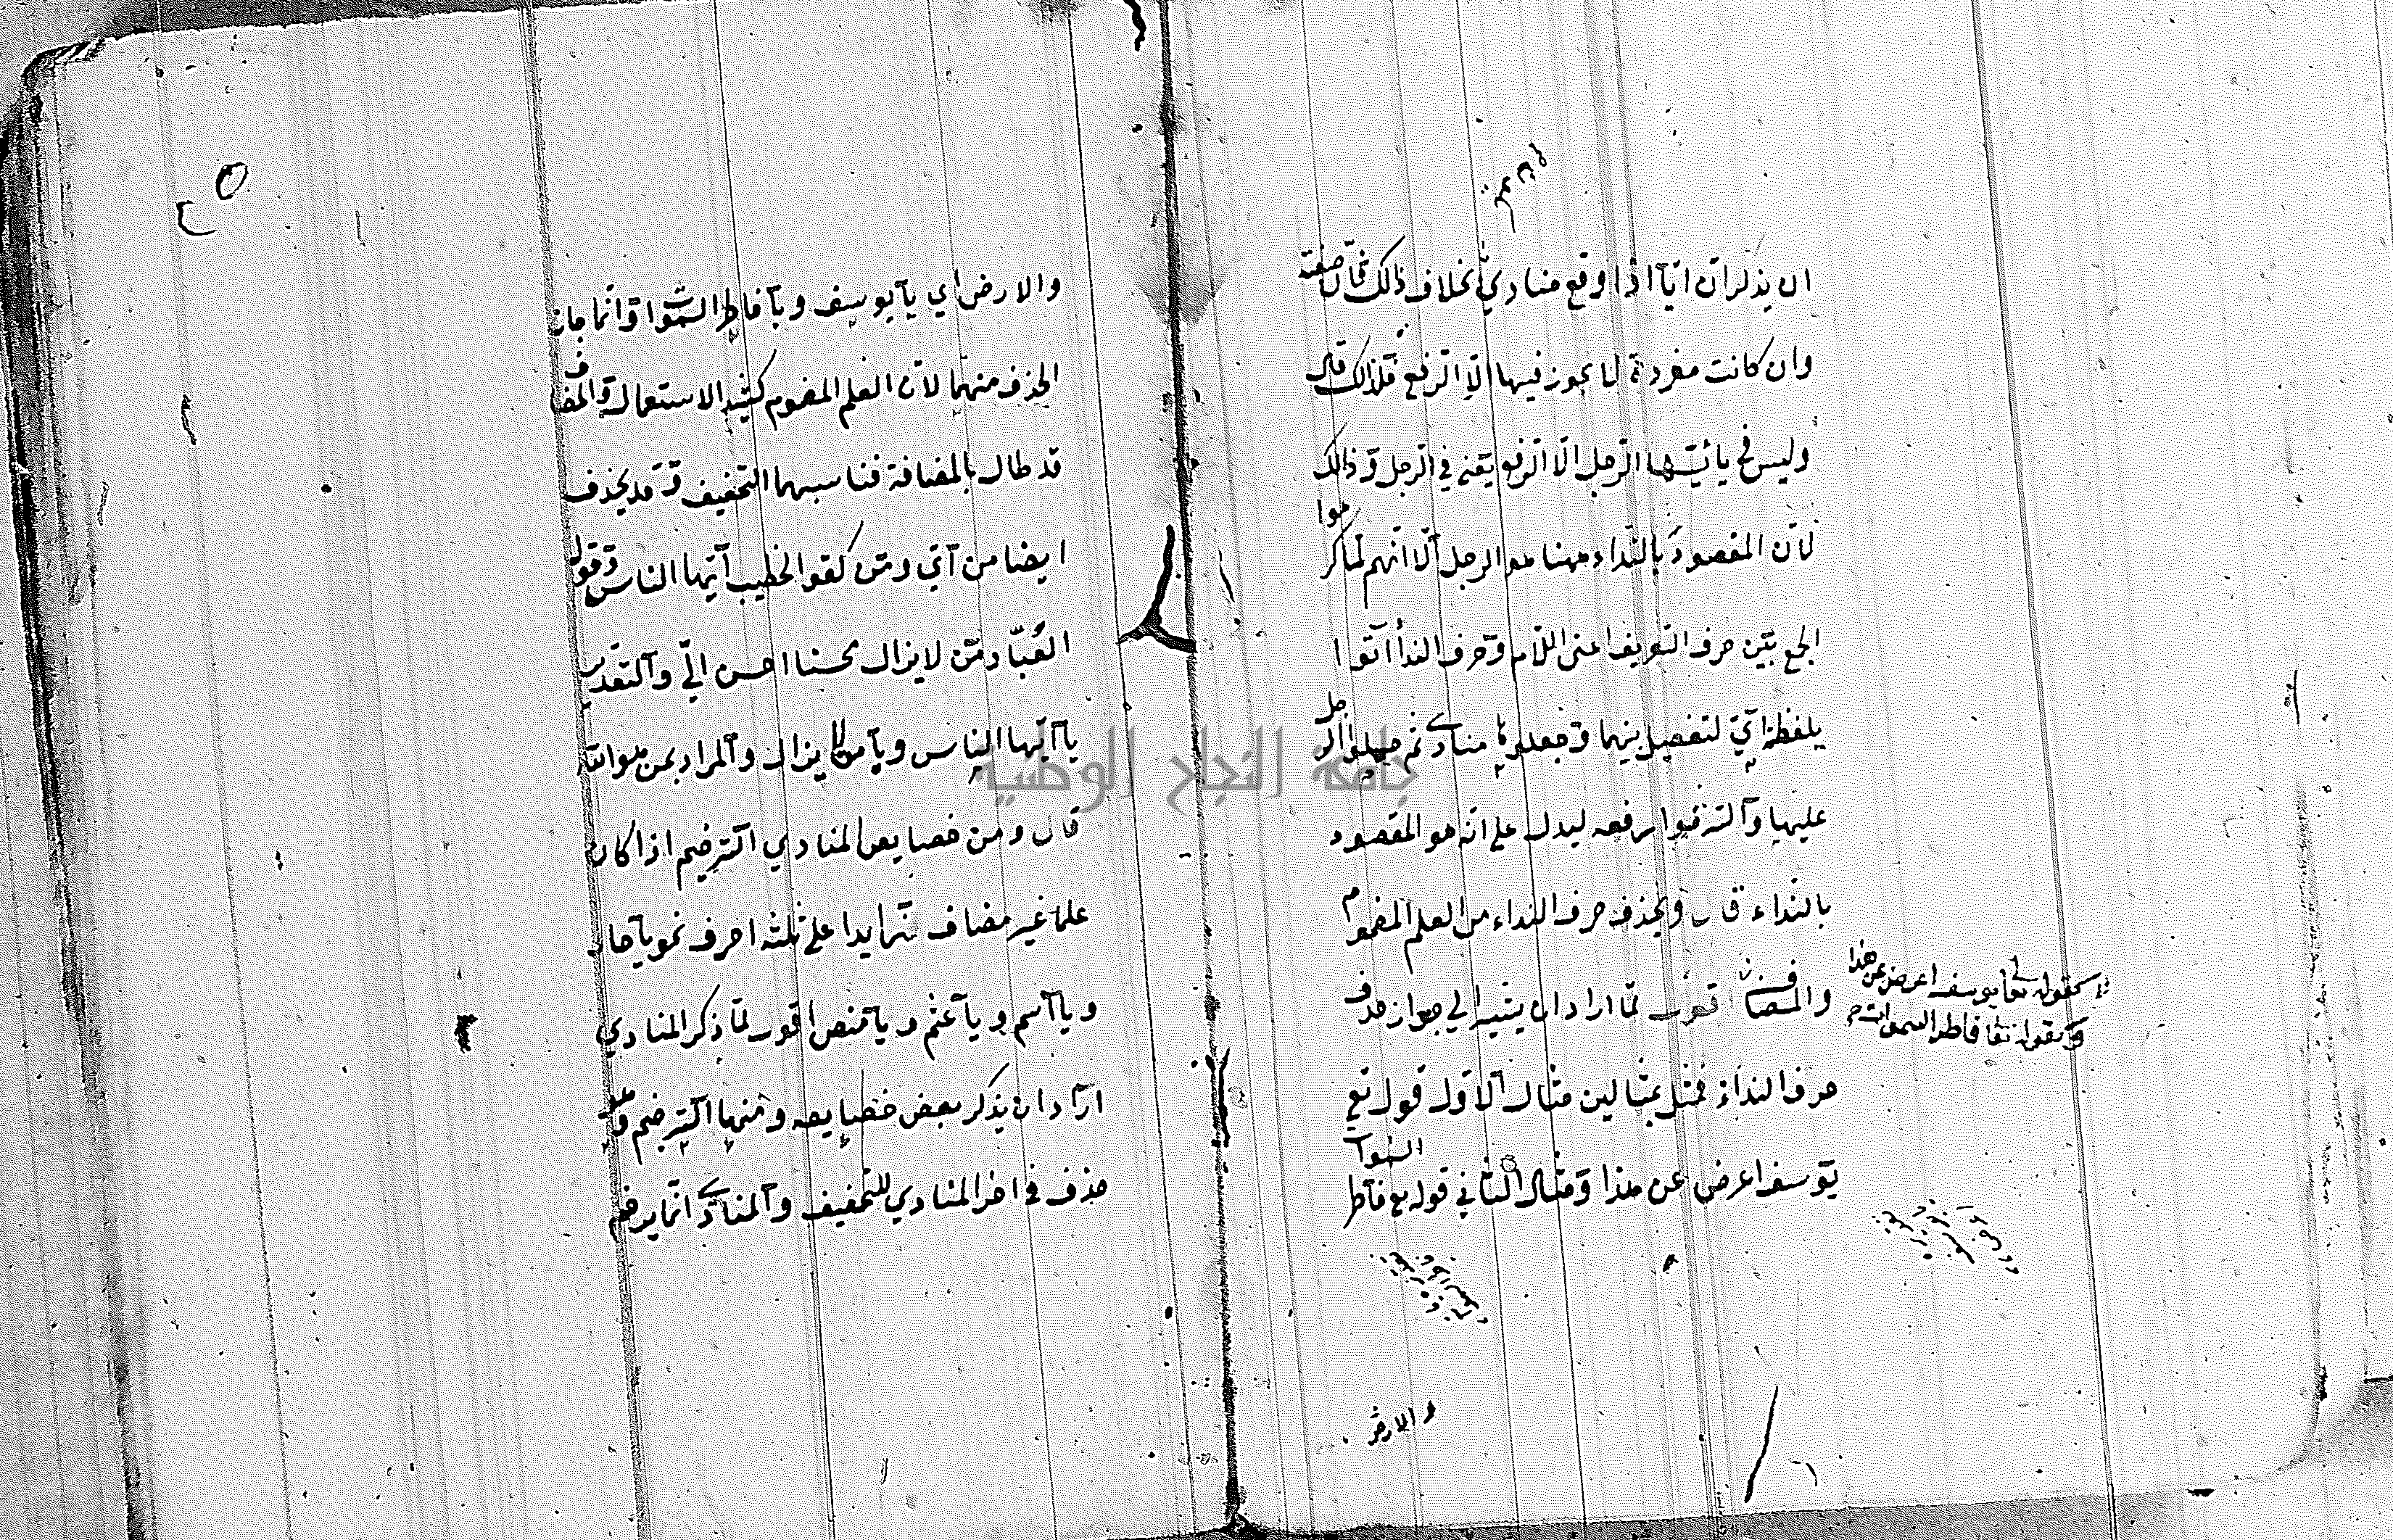 ان يذكر ان ايّا اذا وقع منادي بخلاف ذالك فان صفته
وان كانت مفردة لا يجوز فيها الّا الرفع فلذالك قال
وليس في يا ايّها الرجل الّا الرفع يعني في الرجل وذالك
لان المقصود بالنداء ههنا هو الرجل الّا انهم لمّا كرهوا
الجمع بين حرف التعريف اعنى اللام وحرف النداء اتوا
بلفظة ايّ لتفصل بينهما وجعلوها منادي ثم حملوا الرجل
عليها والتزموا رفعه ليدل على انه هو المقصود
بالنداء قال ويحذف حرف النداء من العلم المضموم
والمضاف اقول لمّا اراد ان يشير الي جواز حذف
حرف النداء فمثل بمثالين مثال الاول قوله تع
يوسف اعرض عن هذا ومثال الثاني قوله تع فاطر السموا
كقوله تعا يوسف اعرض عن هذا
وكقوله تعا فاطر السموات
والارض
والارض اي يا يوسف ويا فاطر السموات وانما جاز
الحذف منهما لان العلم المضموم كثير الاستعمال والمضاف
قد طال بالمضافة فناسبهما التخفيف وقد يحذف
ايضا من ايّ ومن كقو الخطيب ايّها الناس وقول
العُبّاد من لا يزال محسنا احسن اليّ والتقدير
يا ايّها الناس ويا من لا يزال والمراد بمن هو الله
قال ومن خصايص المنادي الترخيم اذا كان
علما غير مضاف زايدا على ثلثه احرف نحو يا حار
ويا اسم ويا عثم ويا منص اقول لمّا ذكر المنادي
اراد ان يذكر بعض خصايصه ومنها الترخيم وهو
حذف في اخر المنادي للتخفيف والمنادي انما يرخم
جامعة النجاح الوطنية